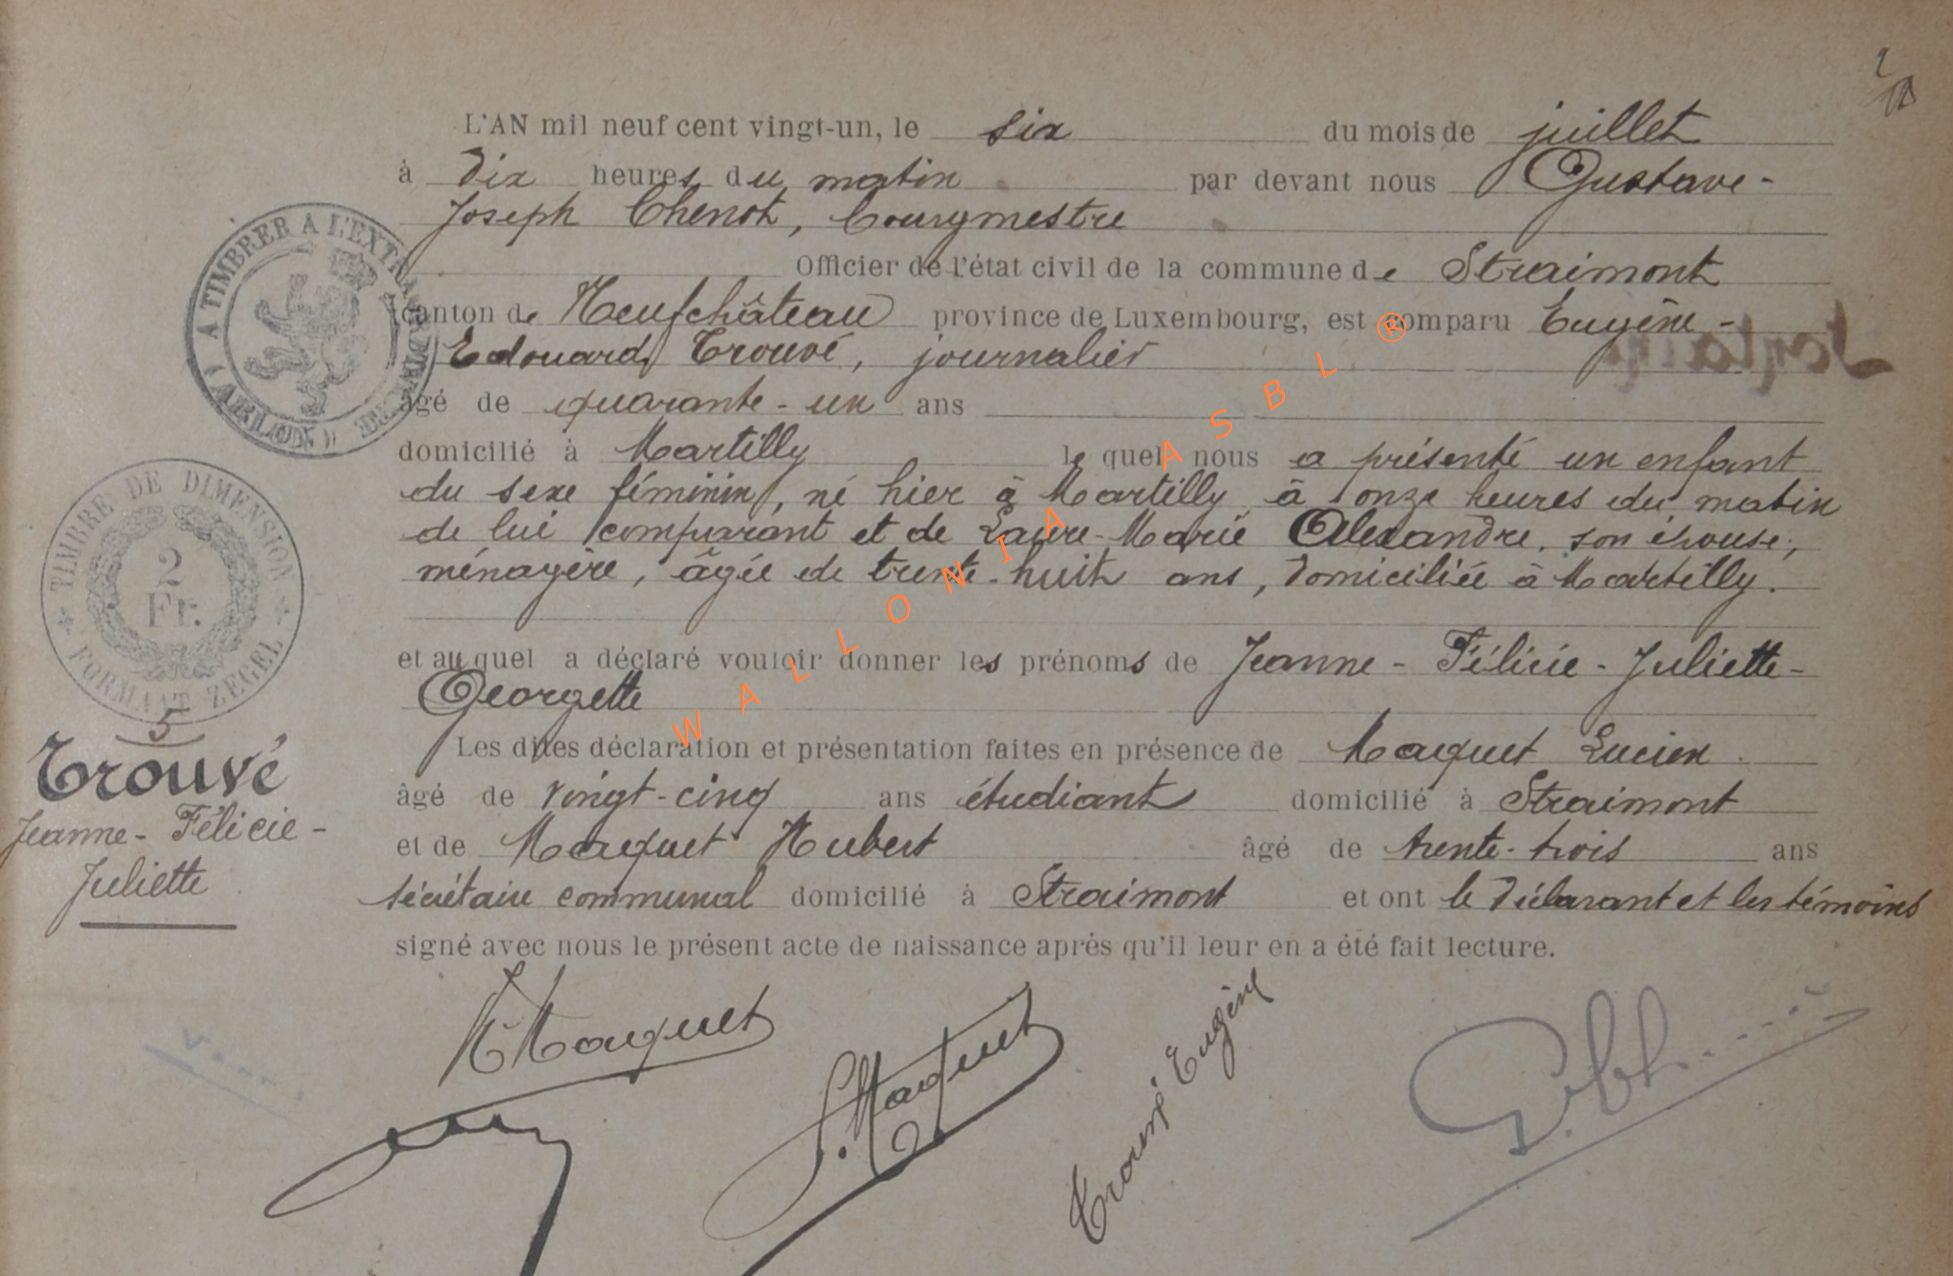 L'AN mil neuf cent vingt-un, le six du mois de juillet
à dix heures du matin par devant nous Gustave-
Joseph Chenot, bourgmestre
Officier de l'état civil de la commune de Straimont
canton de Neufchâteau province de Luxembourg, est comparu Eugène-
Edouard Trouvé, journalier
âgé de quarante-un ans
domicilié à Martilly lequel nous a présenté un enfant
du sexe féminin, né hier à Martilly à onze heures du matin
de lui comparant et de Laure-Marie Alexandre, son épouse,
ménagère, âgée de trente-huit ans, domiciliée à Martilly.
et auquel a déclaré vouloir donner les prénoms de Jeanne-Félicie-Juliette-
Georgette
Les dites déclaration et présentation faites en présence de Maquet Lucien
âgé de vingt-cinq ans étudiant domicilié à Straimont
et de Maquet Hubert âgé de trente-trois ans
secrétaire communal domicilié à Straimont et ont le déclarant et les témoins
signé avec nous le présent acte de naissance après qu'il leur en a été fait lecture.
A TIMBRER A L'EXTRAORDINAIRE
(ARLON)
TIMBRE DE DIMENSION
2
Fr.
FORMAAT ZEGEL
5
Trouvé
Jeanne-Félicie-
Juliette
WALLONIA ASBL ®
H Maquet
L. Maquet
Trouvé Eugène